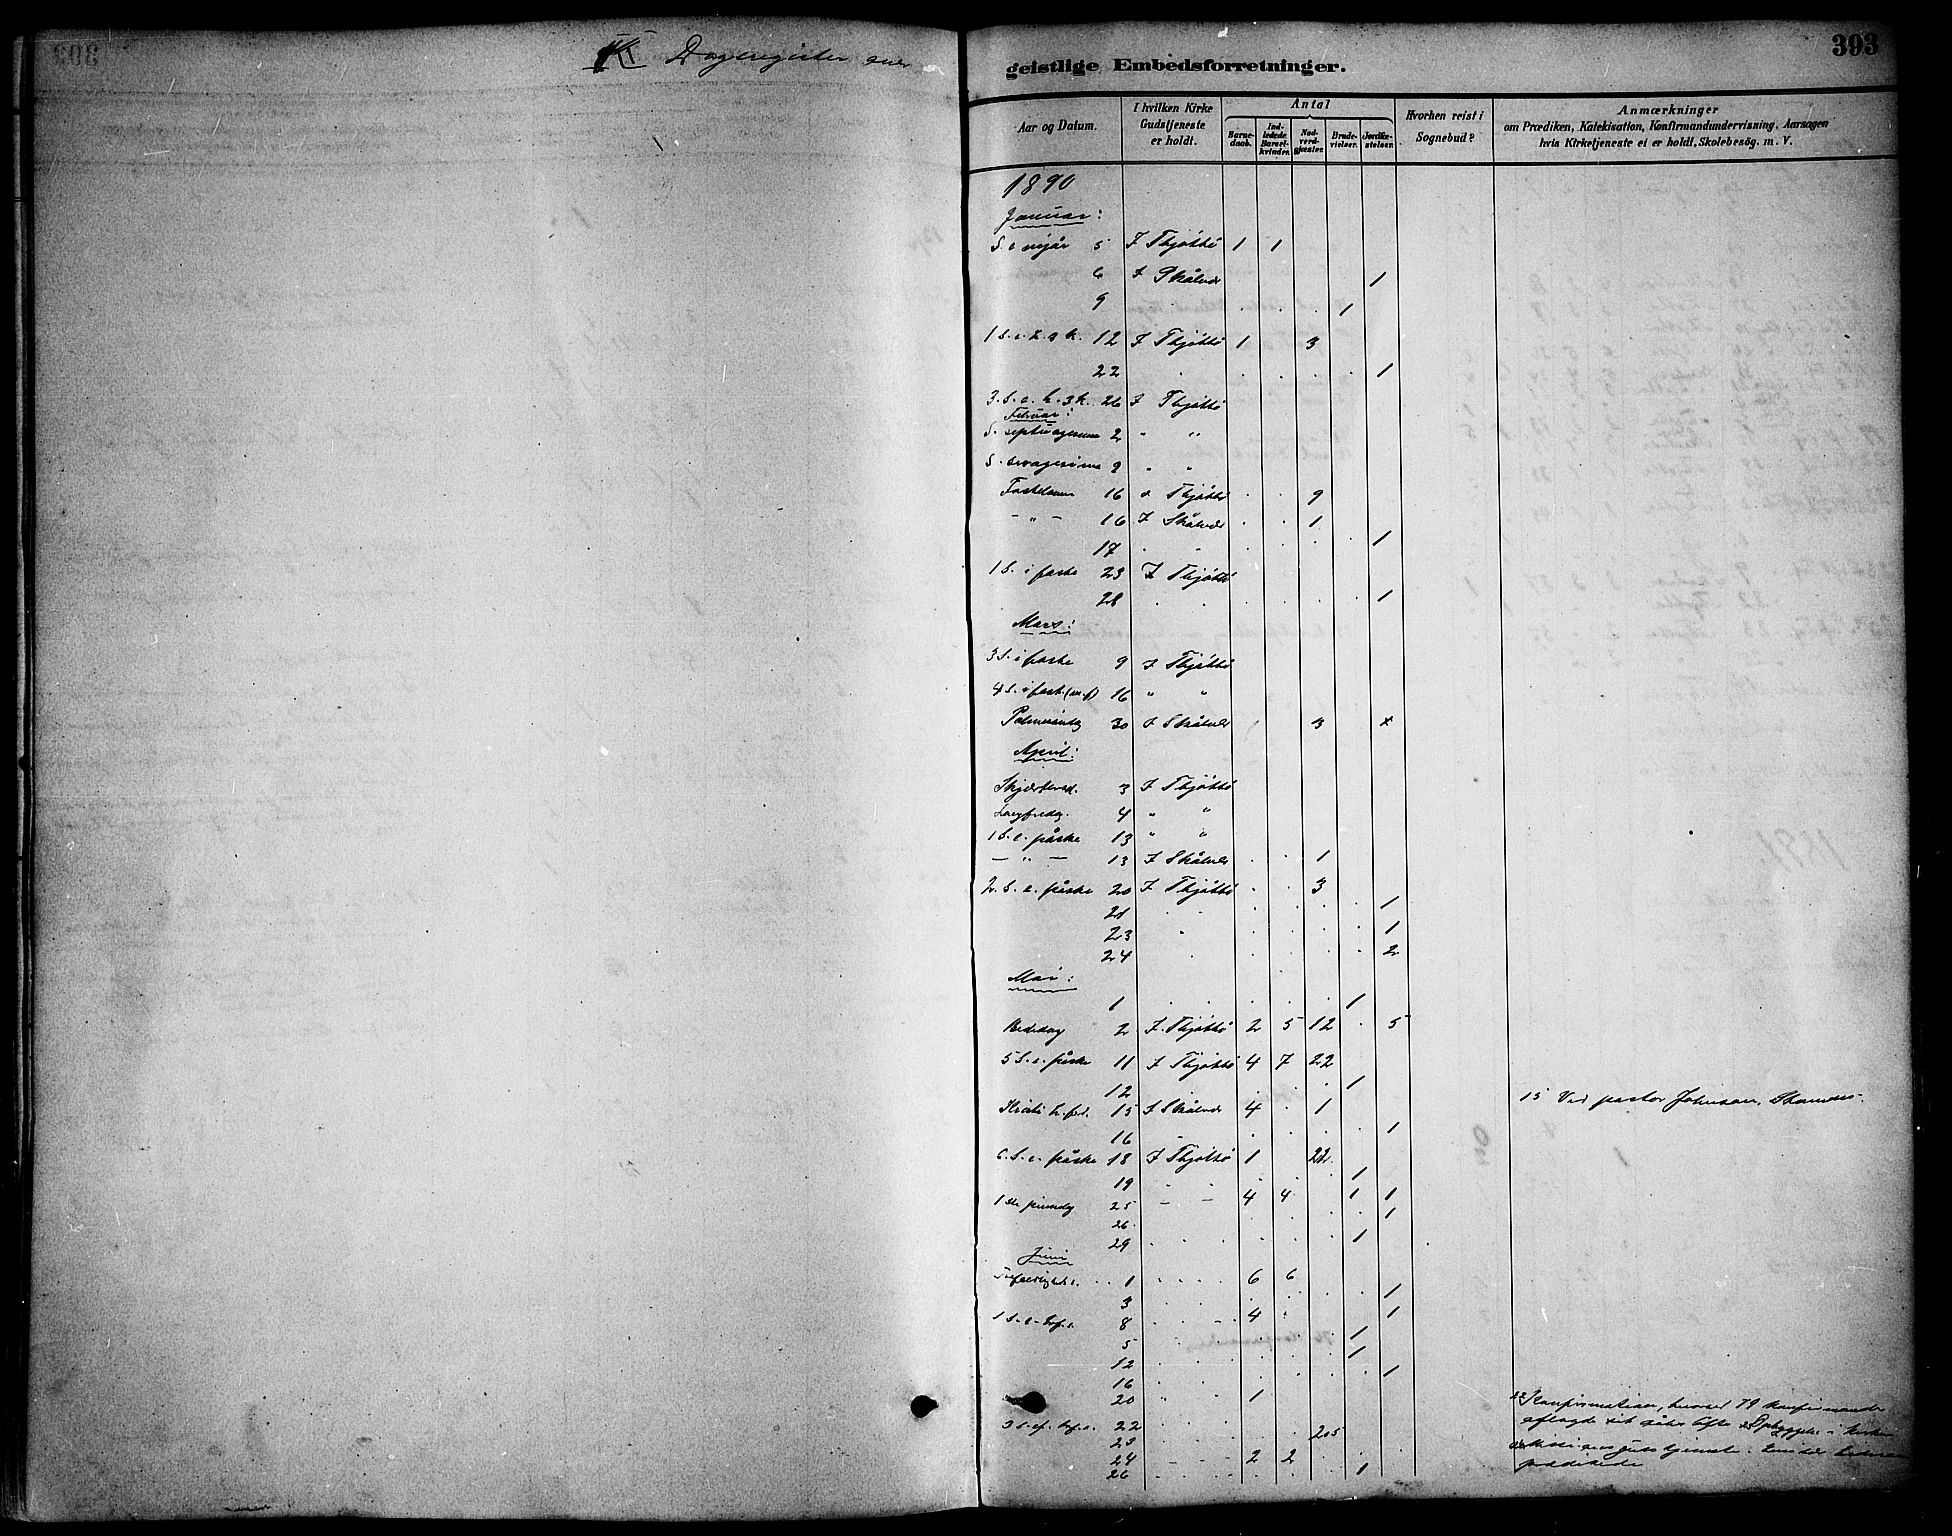 IX Dagregister over
geistlige Embedsforretninger.
393
Aar og Datum. I hvilken Kirke Gudstjeneste er holdt. Antal Barnedaab. Indledede Barselkvinder. Nadverdgjæster. Brudevielser. Jordfæstelser. Hvorhen reist i Sognebud? Anmærkninger om Prædiken, Katekisation, Konfirmandundervisning, Aarsagen hvis Kirketjeneste ei er holdt, Skolebesög. m. V.
1890
Januar:
S. e nyår 5 I Thjøttø 1 1
6 I Skålvær 1
9 . . . . 1
12 I Thjøttø 1 3
22 . . . . . 1
26 I Thjøttø
Februar:
S. septuagesima 2 " "
S. sexagesima 9 " "
Fastelavn 16 Thjøttø . . 9
- " - 16 I Skålvær . . 1
17 . . . . . . 1
1 S. i faste 23 I Thjøttø
28 . . . . . . 1
Mars:
3 S. i faste 9 I Thjøttø
4 S. i fast. 16 " "
Palmesøndag 30 I Skålvær 3 x
April:
Skjærtorsd. 3 I Thjøttø
Langfredag. 4 " "
1 S. e. påske 13 " "
- " - 13 I Skålvær . . 1
2. S. e. påske 20 I Thjøttø . . 3
21 . . . . . . 1
23 . . . . . 1
24 . . . . . 2
Mai:
1 . . . . . 1
Bededag 2 I Thjøttø 2 5 12 . 5
5 S. e. påske 11 I Thjøttø 4 7 22
12 . . 1
Kristi h. frd. 15 I Skålvær 4 . 1 15 Ved pastor Johnson,
16 - . . . . 1
6. S. e. påske 18 I Thjøttø 1 22.
19 . . . . 1
1ste pinsedg 25 - - 4 4 1 1
26 . . . . 1
29 . . . . . 1
Juni
1 . . . . 6 6
3 . . . . . 1
8 . . . 4 . 1
5 . . . . 1
12 . . . . . 1
16 . . . . . 1
20 . " . 1
22 . . . . . 205 22 Konfirmation, hvorved 79 konfirmander
23 aflagde sit
24 . . . 2 2 . .
26 . . . . . 1 prædikede